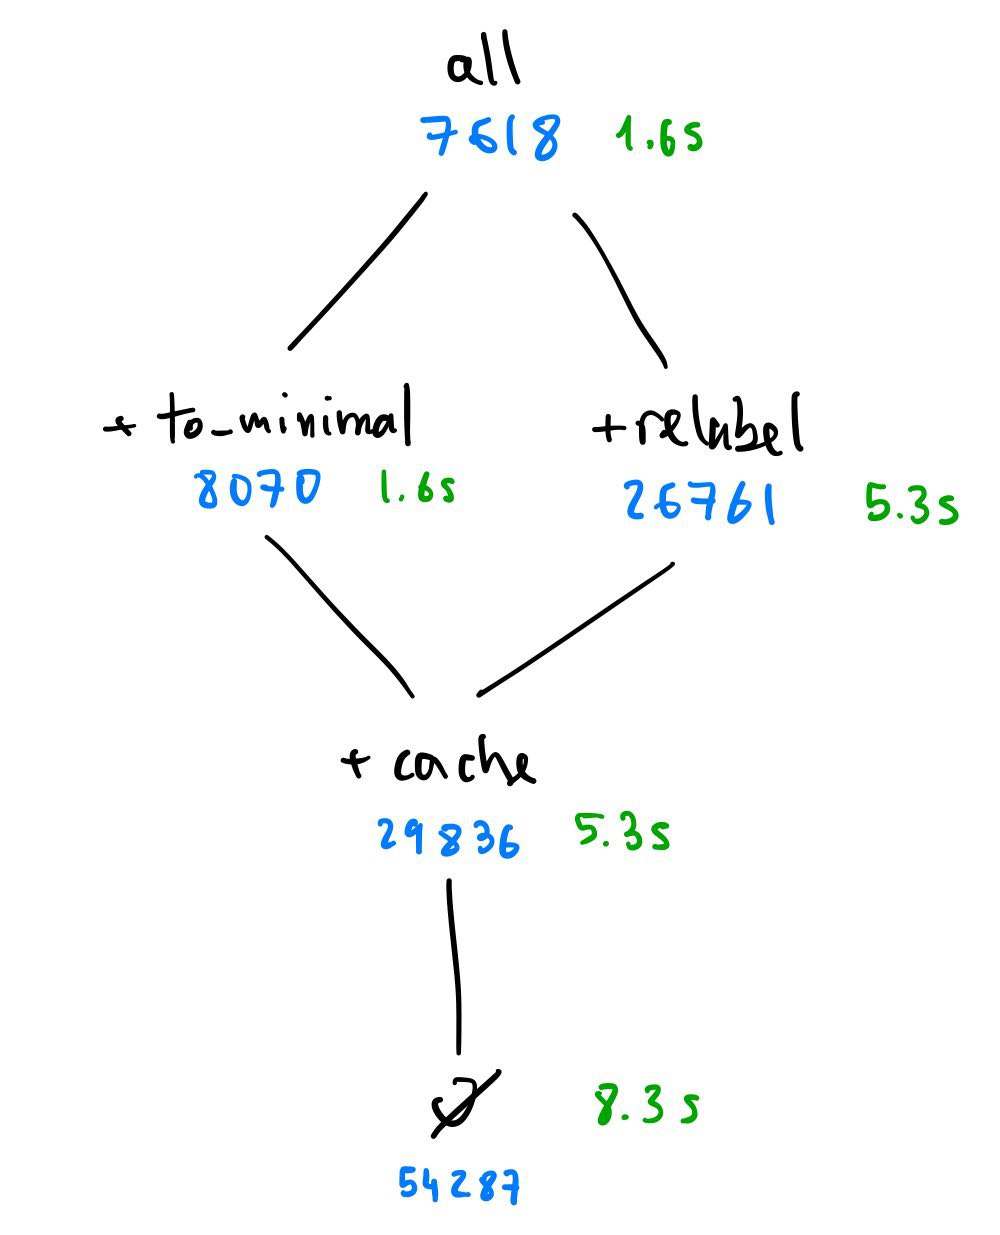 all
7618 1.6s
+ to_minimal
8070 1.6s
+relabel
26761 5.3s
+ cache
29836 5.3s
∅ 8.3s
54287